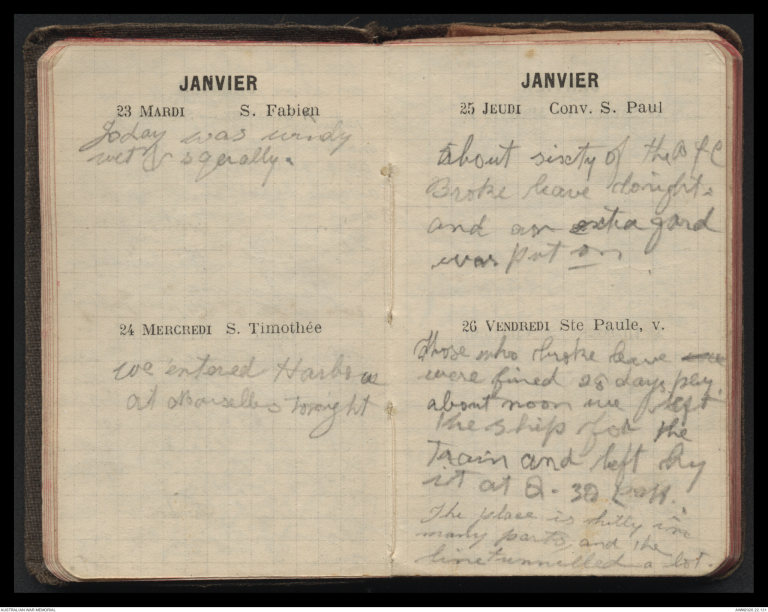 JANVIER
23 MARDI S. Fabien
Today was windy
wet & sqerally.
24 MERCREDI S. Timothée
we entered Harbour
at Marsells tonight
JANVIER
25 JEUDI Conv. S. Paul
About sixty of the
Broke leave tonight
and an extra gard
was put on
26 VENDREDI Ste Paule, v.
those who broke leave
were fined 28 days pay.
about noon we left
the ship for the
Train and left by
it at 2-30
The place is hilly in
many parts and the
line tunnelled a lot.
AUSTRALIAN WAR MEMORIAL